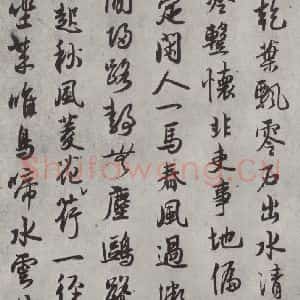 乾葉飄零石出水清
整懷非吏事地偏
定閑人一馬春風過
歸路静無塵鷗
起秋風菱花荷一徑
葉唯鳥啼水雲
Shufawang.Cn